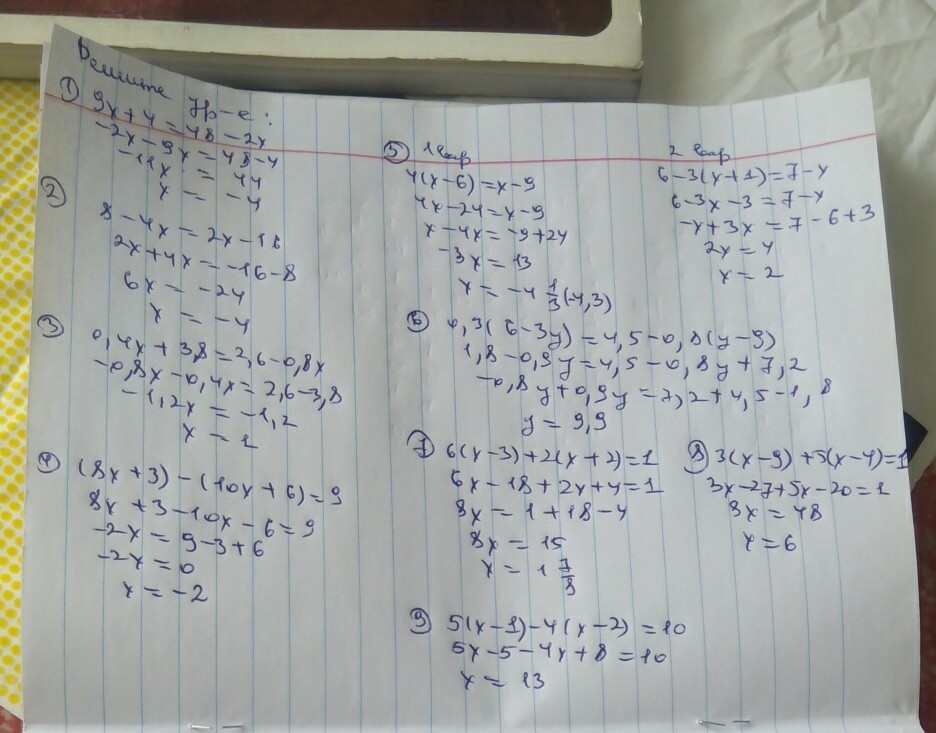 Решите ур-е:
① 9x+4=48-2x
-2x-9x=48-4
-11x = 44
x = -4
②
8-4x=2x-16
2x+4x=-16-8
6x = -24
x = -4
③
0,4x+3,8=2,6-0,8x
-0,8x-0,4x=2,6-3,8
-1,2x=-1,2
x=1
④ (8x+3)-(10x+6)=9
8x+3-10x-6=9
-2x=9-3+6
-2x=0
x=-2
⑤ 1 вар
4(x-6)=x-9
4x-24=x-9
x-4x=-9+24
-3x=13
x=-4 1/3 (-4,3)
2 вар
6-3(x+1)=7-x
6-3x-3=7-x
-x+3x=7-6+3
2x=4
x=2
⑥ 0,3(6-3y)=4,5-0,8(y-9)
1,8-0,9y=4,5-0,8y+7,2
-0,8y+0,9y=7,2+4,5-1,8
y=9,9
⑦ 6(x-3)+2(x+2)=1
6x-18+2x+4=1
8x=1+18-4
8x=15
x=1 7/8
⑧ 3(x-9)+5(x-4)=1
3x-27+5x-20=1
8x=48
x=6
⑨ 5(x-1)-4(x-2)=10
5x-5-4x+8=10
x=13